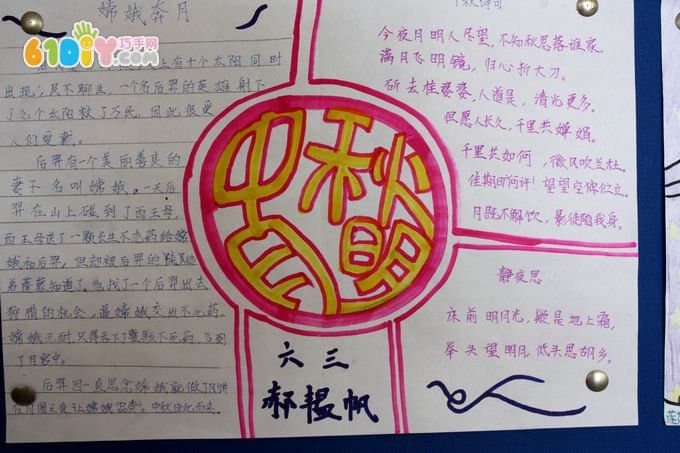 嫦娥奔月
610DIY巧手网
有十个太阳同时
出现，民不聊生，一个名后羿的英雄射下
了九个太阳救了万民，因此很受
人们爱戴。
后羿有一个美丽善良的
妻子名叫嫦娥。一天后
羿在山上碰到了西王母，
西王母送了一颗长生不老药给嫦
娥和后羿，
知道了。他找了一个后羿出去
狩猎的机会，逼嫦娥交出不死药。
嫦娥无耐，只得吞下了不死药，飞到
了月宫中。
后羿因
中秋
明月
六三
郝韫帆
今夜月明人尽望，不知秋思落谁家。
满月飞明镜，归心折大刀。
斫去桂婆娑，人道是，清光更多。
但愿人长久，千里共婵娟。
千里共如何，微风吹兰杜。
佳期旷何许！望望空伫立。
月既不解饮，影徒随我身。
静夜思
床前明月光，疑是地上霜，
举头望明月，低头思故乡。